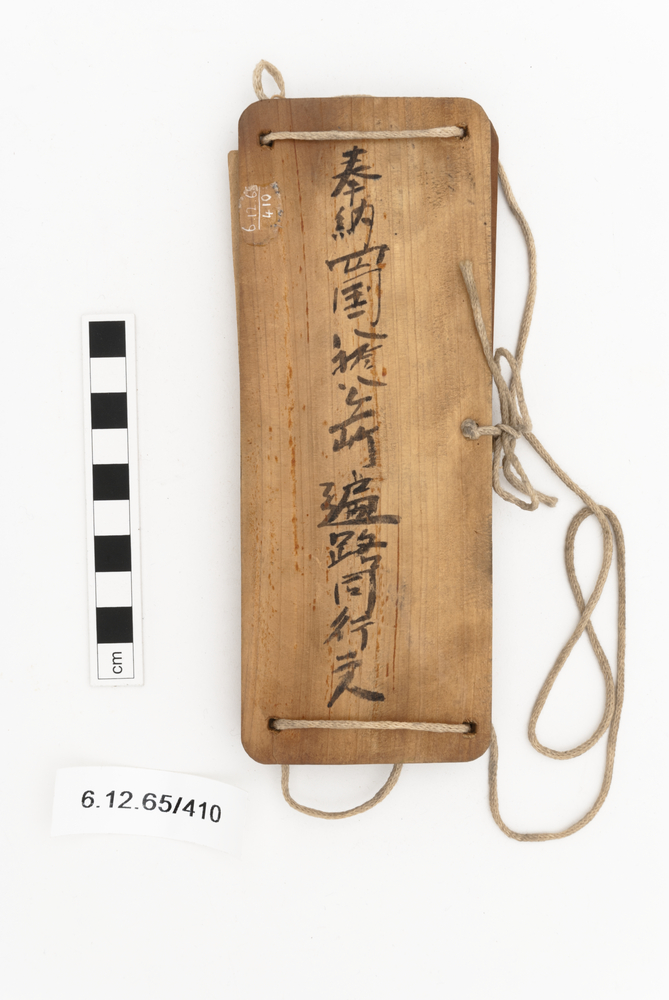 奉納四国八拾八ヶ所遍路同行二人
6.12.65
410
cm
6.12.65/410